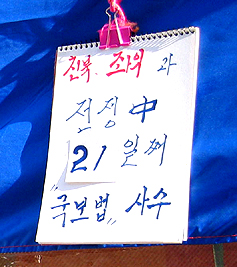 친북. 좌익 과
전쟁 中
21 일째
"국보법" 사수